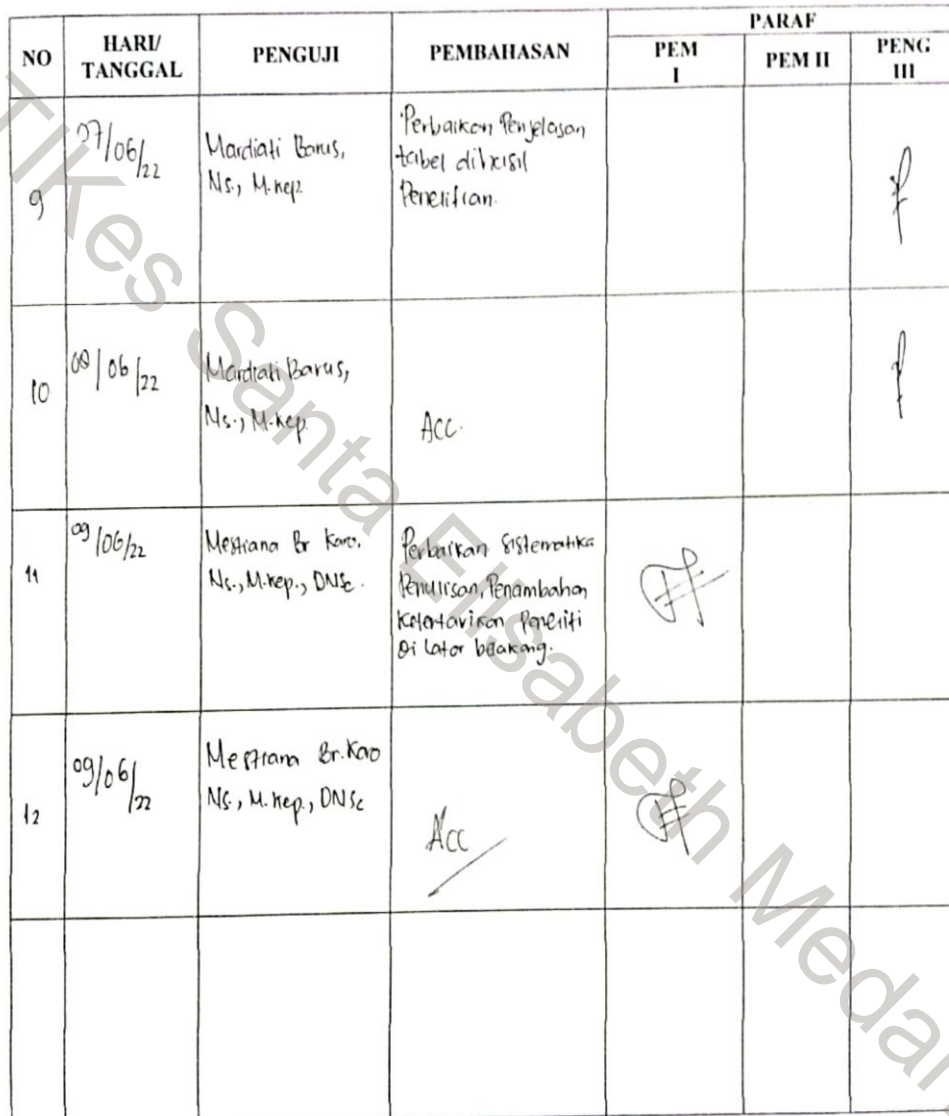 NO
HARI/
TANGGAL
PENGUJI
PEMBAHASAN
PARAF
PEM
I
PEM II
PENG
III
9
07/06/22
Mardiati Barus,
Ns., M.kep.
Perbaikan Penjelasan
tabel dihasil
Penelitian.
10
08/06/22
Mardiati Barus,
Ns., M.kep.
Acc.
11
09/06/22
Mestiana Br Karo.
Ns., M.kep., DNSc.
Perbaikan Sistematika
Penulisan, Penambahan
Ketertarikan Peneliti
Di latar belakang.
12
09/06/22
Mestiana Br. Karo
Ns., M.kep., DNSc
Acc
TIKes Santa Elisabeth Medan